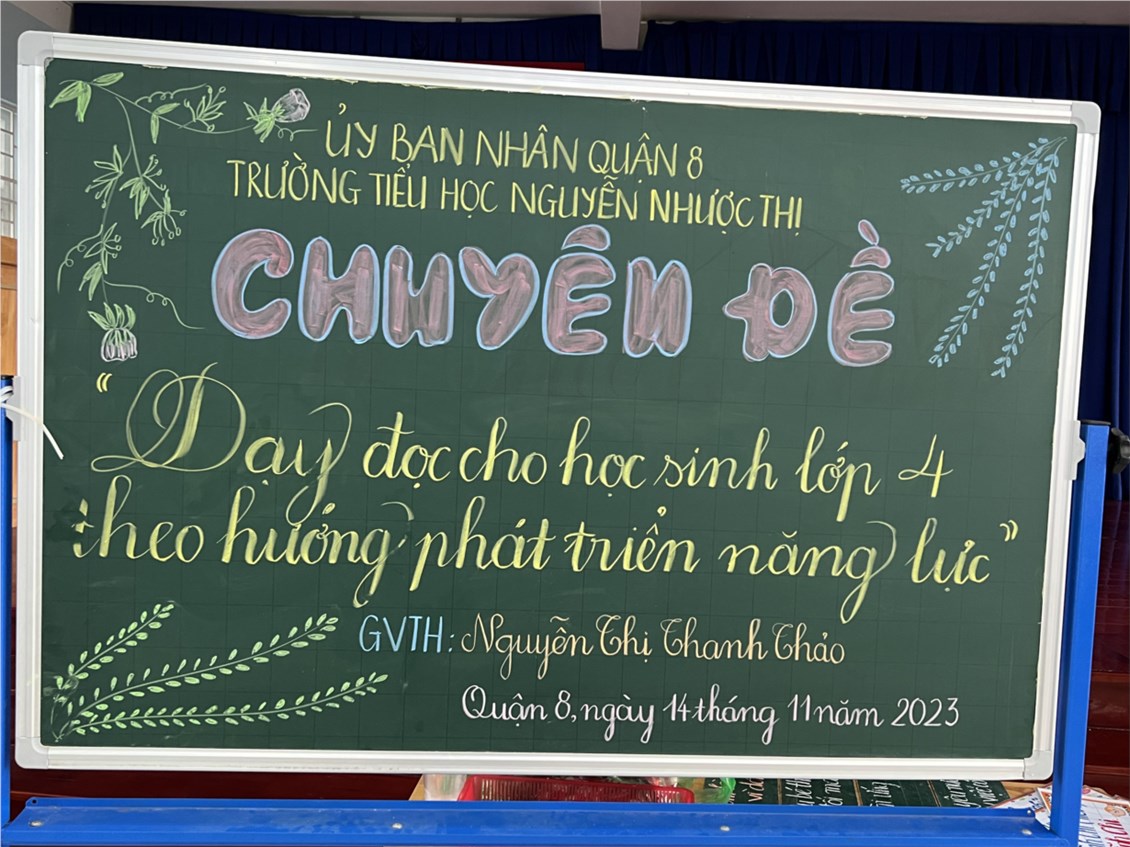 ỦY BAN NHÂN QUẬN 8
TRƯỜNG TIỂU HỌC NGUYỄN NHƯỢC THỊ
CHUYÊN ĐỀ
“Dạy đọc cho học sinh lớp 4
theo hướng phát triển năng lực”
GVTH: Nguyễn Thị Thanh Thảo
Quận 8, ngày 14 tháng 11 năm 2023